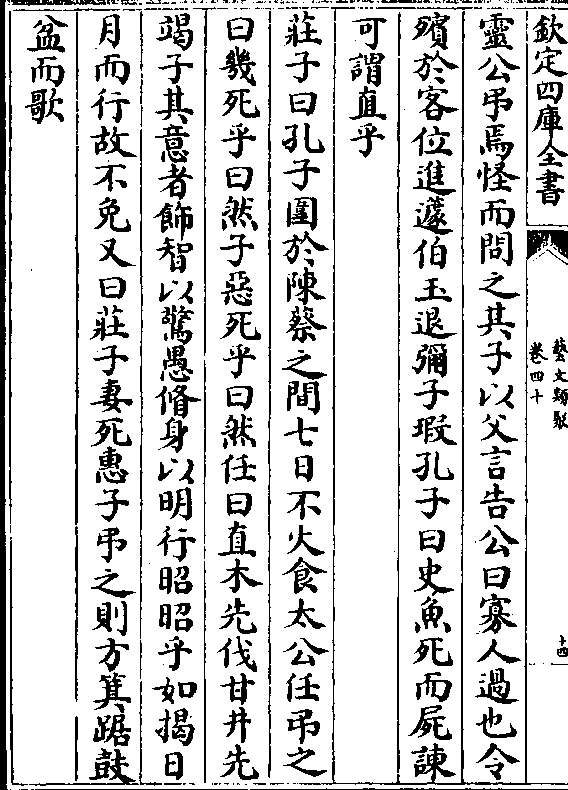 欽定四庫全書
藝文類聚
卷四十
十四
靈公弔焉怪而問之其子以父言告公曰寡人過也令
殯於客位進蘧伯玉退彌子瑕孔子曰史魚死而屍諫
可謂直乎
莊子曰孔子圍於陳蔡之間七日不火食太公任弔之
曰幾死乎曰然子惡死乎曰然任曰直木先伐甘井先
竭子其意者飾智以驚愚脩身以明行昭昭乎如揭日
月而行故不免又曰莊子妻死惠子弔之則方箕踞鼓
盆而歌